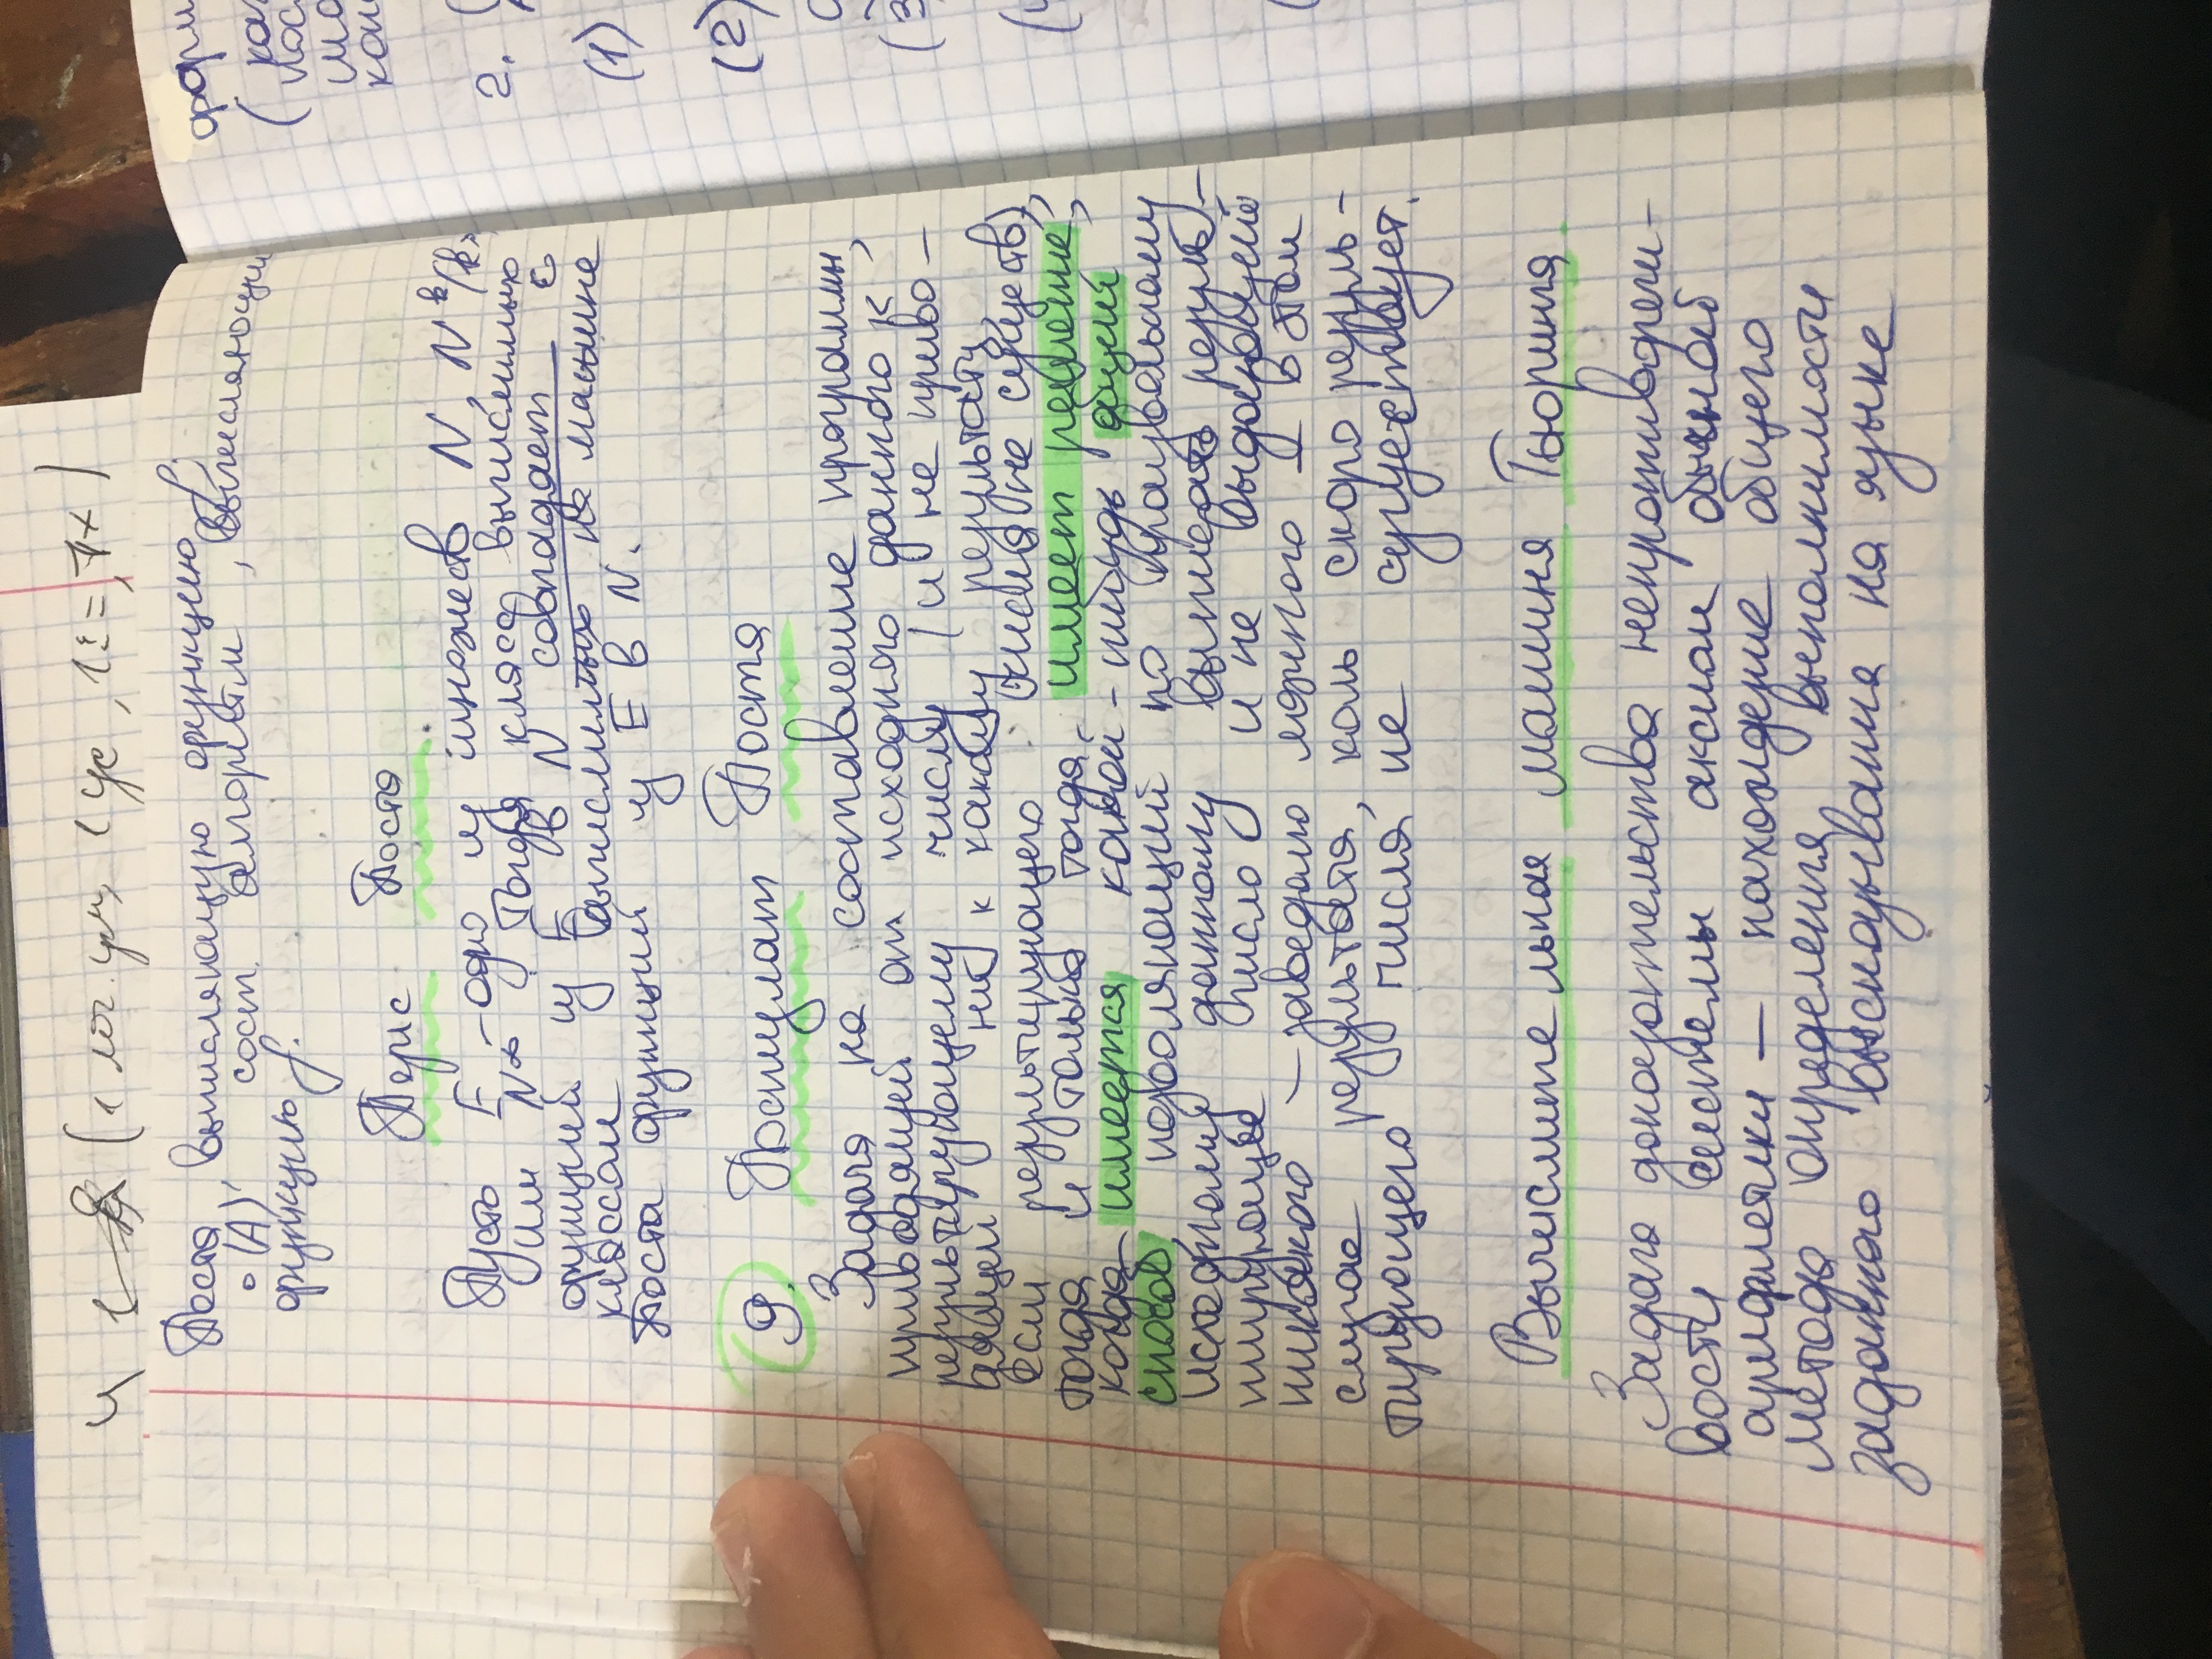 Поста, вычисляющую функцию f.
• (A) сост. алгоритм, вычисляющий
функцию f.
Тезис Поста
Пусть E – одно из множеств N, N^k (k
или N^∞. Тогда класс вычислимых
функций из E в N совпадает с
классом вычислимых на машине
Поста функций из E в N.
9. Постулат Поста
Задача на составление программы,
приводящей от исходного данного к
результирующему числу (и не приво-
дящей ни к какому результату,
если результирующего числа не существ),
тогда и только тогда имеет решение,
когда имеется какой-нибудь общий
способ, позволяющий по произвольному
исходному данному выписать резуль-
тирующее число и не выдающий
никакого – заведомо ложного – в этом
случае результата, коль скоро резуль-
тирующего числа не существует.
Вычислительная машина Тьюринга
Задача доказательства непротиворечи-
вости системы аксиом обычной
арифметики — нахождение общего
метода определения выполнимости
заданного высказывания на языке
форм
2.
(1)
(2)